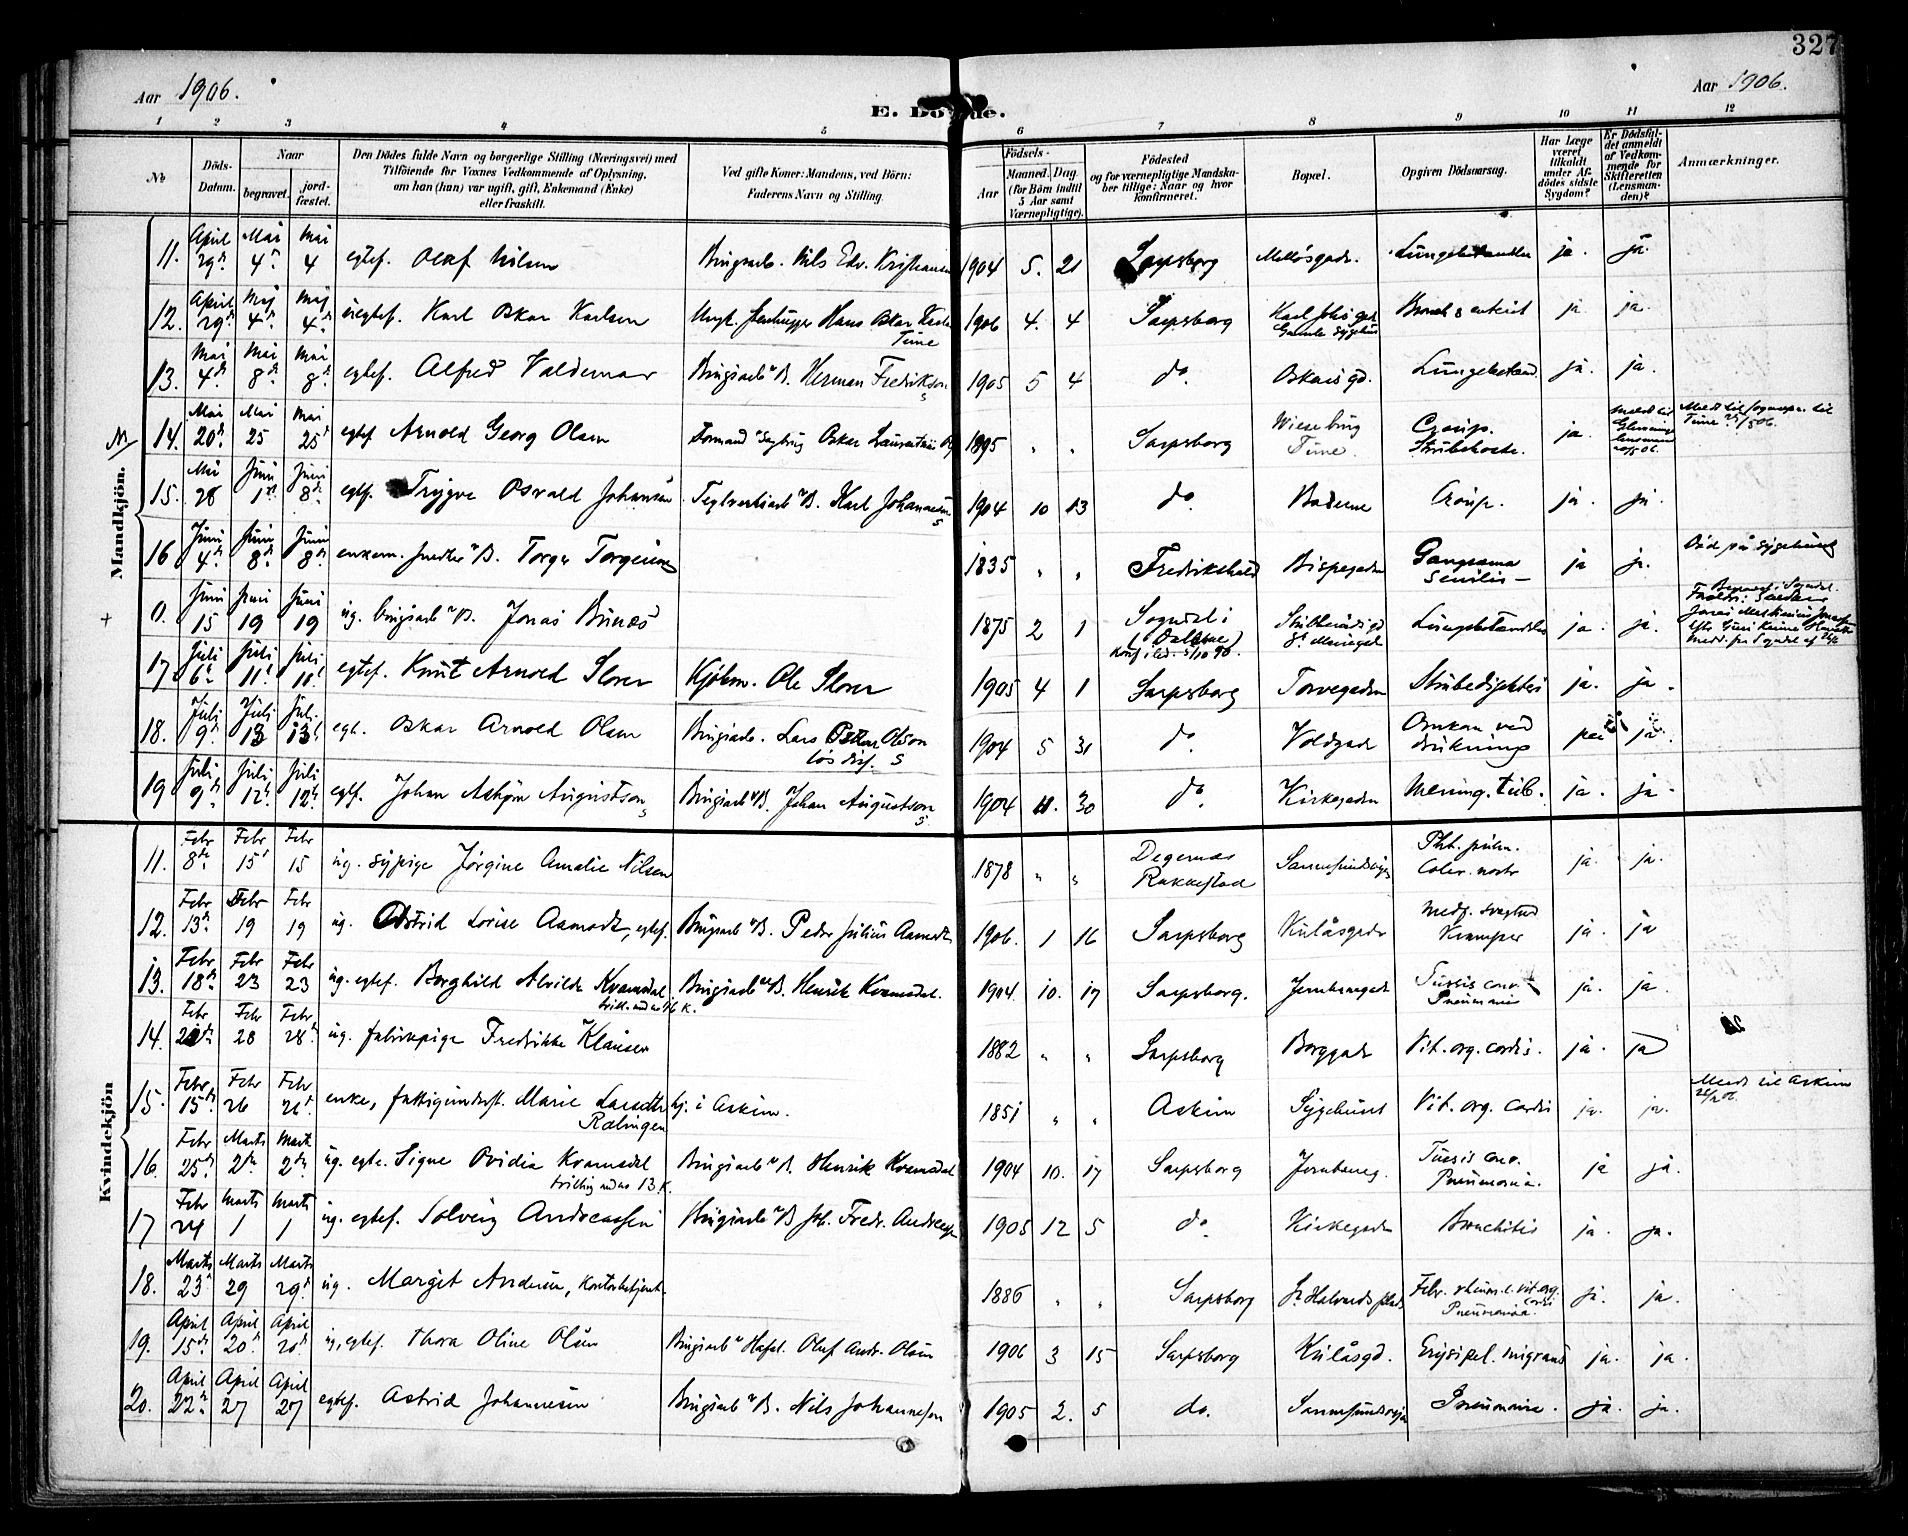 327
Aar 1906.
E. Dö de.
Aar 1906.
1 2 3 4 5 6 7 8 9 10 11 12
No
Döds-Datum.
Naar
begravet.
jord-fæstet.
Den Dödes fulde Navn og borgerlige Stilling (Næringsvei) med
Tilföiende for Voxnes Vedkommende af Oplysning,
om han (hun) var ugift, gift, Enkemand (Enke)
eller fraskilt.
Ved gifte Koner: Mandens, ved Börn:
Faderens Navn og Stilling.
Födsels-
Aar
Maaned. Dag.
(for Börn indtil
5 Aar samt
Værnepligtige).
Födested
og for værnepligtige Mandska-
ber tillige: Naar og hvor
konfirmeret.
Bopæl.
Opgiven Dödsaarsag.
Har Læge
været
tilkaldt
under Af-
dödes sidste
Sygdom?
Er Dödsfal-
det anmeldt
af Vedkom-
mende for
Skifteretten
(Lensman-
den)?
Anmærkninger.
Mandkjön.
11. April 29de Mai 4de Mai 4 egtef. Olaf Nilsen Brugsarb. Nils Edv. Kristiansen 1904 5. 21 Sarpsborg Mellösgade. Lungebetændelse ja. ja.
12. April 29de Maj 4de Maj 4de uegtef. Karl Oskar Karlsen Ungk. Stenhugger Hans Oskar Tune 1906 4. 4 Sarpsborg Karl Johs gd. Gamle Sygehus Bronch & enterit ja ja.
13. Mai 4de Mai 8de Mai 8de egtef. Alfred Valdemar Brugsarb v B. Herman Fredrikson 1905 5 4 do. Oskars gd. Lungebetænd. ja. ja.
14. Mai 20de Mai 25 Mai 25de egtef Arnold Georg Olsen Formand v Sagbrug Oskar 1895 " " Sarpsborg Tune Croup. Strubehoste. ja.
15. Mai 28 Juni 1ste Juni 8de egtf. Trygve Osvald Johansen Teglverksarb v B. Karl Johannesen 1904 10 13 do. Croup. ja ja.
16 Juni 4de Juni 8de Juni 8de enkem. snedker v B. Torger Torgersen 1835 " " Fredrikshald Bispegaden Gangræna senilis ja ja. Död på Sygehuset
0. Juni 15 Juni 19 Juni 19 ug. brugsarb v B. Jonas Bunæs 1875 2 1 Sogndal i Dalene konf ibd. 5/10 90. Lungebetændelse ja. ja.
17 Juli 6te Juli 11te Juli 11te egtef. Knut Arnold Storer Kjöbm. Ole Storer 1905 4 1 Sarpsborg Torvegaden Strubedifteri ja. ja.
18. Juli 9de Juli 13 Juli 13 egt. Oskar Arnold Olsen Brugsarb. Lars Oskar Olson lös arb. 1904 5 31 do. Voldgade Omkom ved drukning ja.
19 Juli 9de Juli 12te Juli 12te egtf. Johan Asbjörn Augustson Brugsarb v B. Johan Augustson 1904 11. 30 do. Kirkegaden Mening. tub. ja. ja.
Kvindekjön
11. Febr 8de Febr 15 Febr 15 ug. sypige Jörgine Amalie Nilsen 1878 " " Degernæs Rakkestad Sannesundsveien Pht. pulm. ja. ja.
12. Febr 13de Febr 19 Febr 19 ug. Astrid Lovise Aamodt, egtef. Brugsarb v B. Peder Julius Aamodt 1906. 1 16 Sarpsborg Kulåsgade Medf. svaghed Kramper ja. ja
13. Febr 18de Febr 23 Febr 23 ug. egtef. Borghild Alvilde Kvamsdal tvill. med no 16 K. Brugsarb v B. Henrik Kvamsdal. 1904. 10. 17 Sarpsborg. Jernbanegade Tussis conv. Pneumonia ja. ja.
14. Febr Febr 28 Febr 28de ug. fabrikpige Fredrikke Klausen 1882 " " Sarpsborg Borggade Vit. org. cordis. ja. ja
15. Febr 15de Febr 26 Febr 26de enke, fattigunderst. Marie Larsdtr Rælingen hj. i Askim. 1851 " " Askim Sygehuset Vit. org. cordis ja. ja. Meldt til Askim
16. Febr 25de Marts 2den Marts 2den ug. egte. Signe Ovidia Kvamsdal tvilling med no 13 K. Brugsarb v B. Henrik Kvamsdal 1904 10. 17 Sarpsborg Jernbaneg. Tussis conv. Pneumonia. ja ja.
17 Febr 24 Marts 1 Marts 1 ug. egtef. Solveig Andreassen Brugsarb v B Joh. Fredr. Andreassen 1905 12 5 do. Kirkegaden Bronchitis ja. ja.
18. Marts 23 Marts 29 Marts 29de ug. Margit Andersen, Kontorbetjent. 1886 " " Sarpsborg St. Halvards plads Febr. rheum. c. vit. org. cordis Pneumonia ja. ja.
19. April 15de April 20de April 20de ug. egtef. Thora Oline Olsen Brugsarb v Hafsl. Oluf Andr. Olsen 1906 3 15 Sarpsborg Kulåsgd. Erysipel. migrans ja. ja.
20. April 22de April 27 April 27 egtef. Astrid Johannesen Brugsarb v B. Nils Johannesen 1905 2. 5 do. Sannesundsveien Pneumonia. ja. ja.